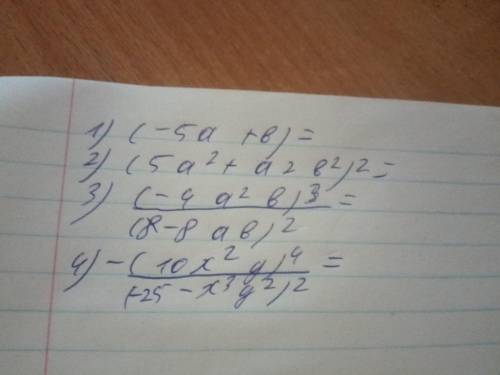 1) (-5a + в) =
2) (5a² + a 2 в²)² =
3) (-4 a² в)³ =
(8-8 aв)²
4) - (10x² y)⁴ =
(-25 - x³y²)²